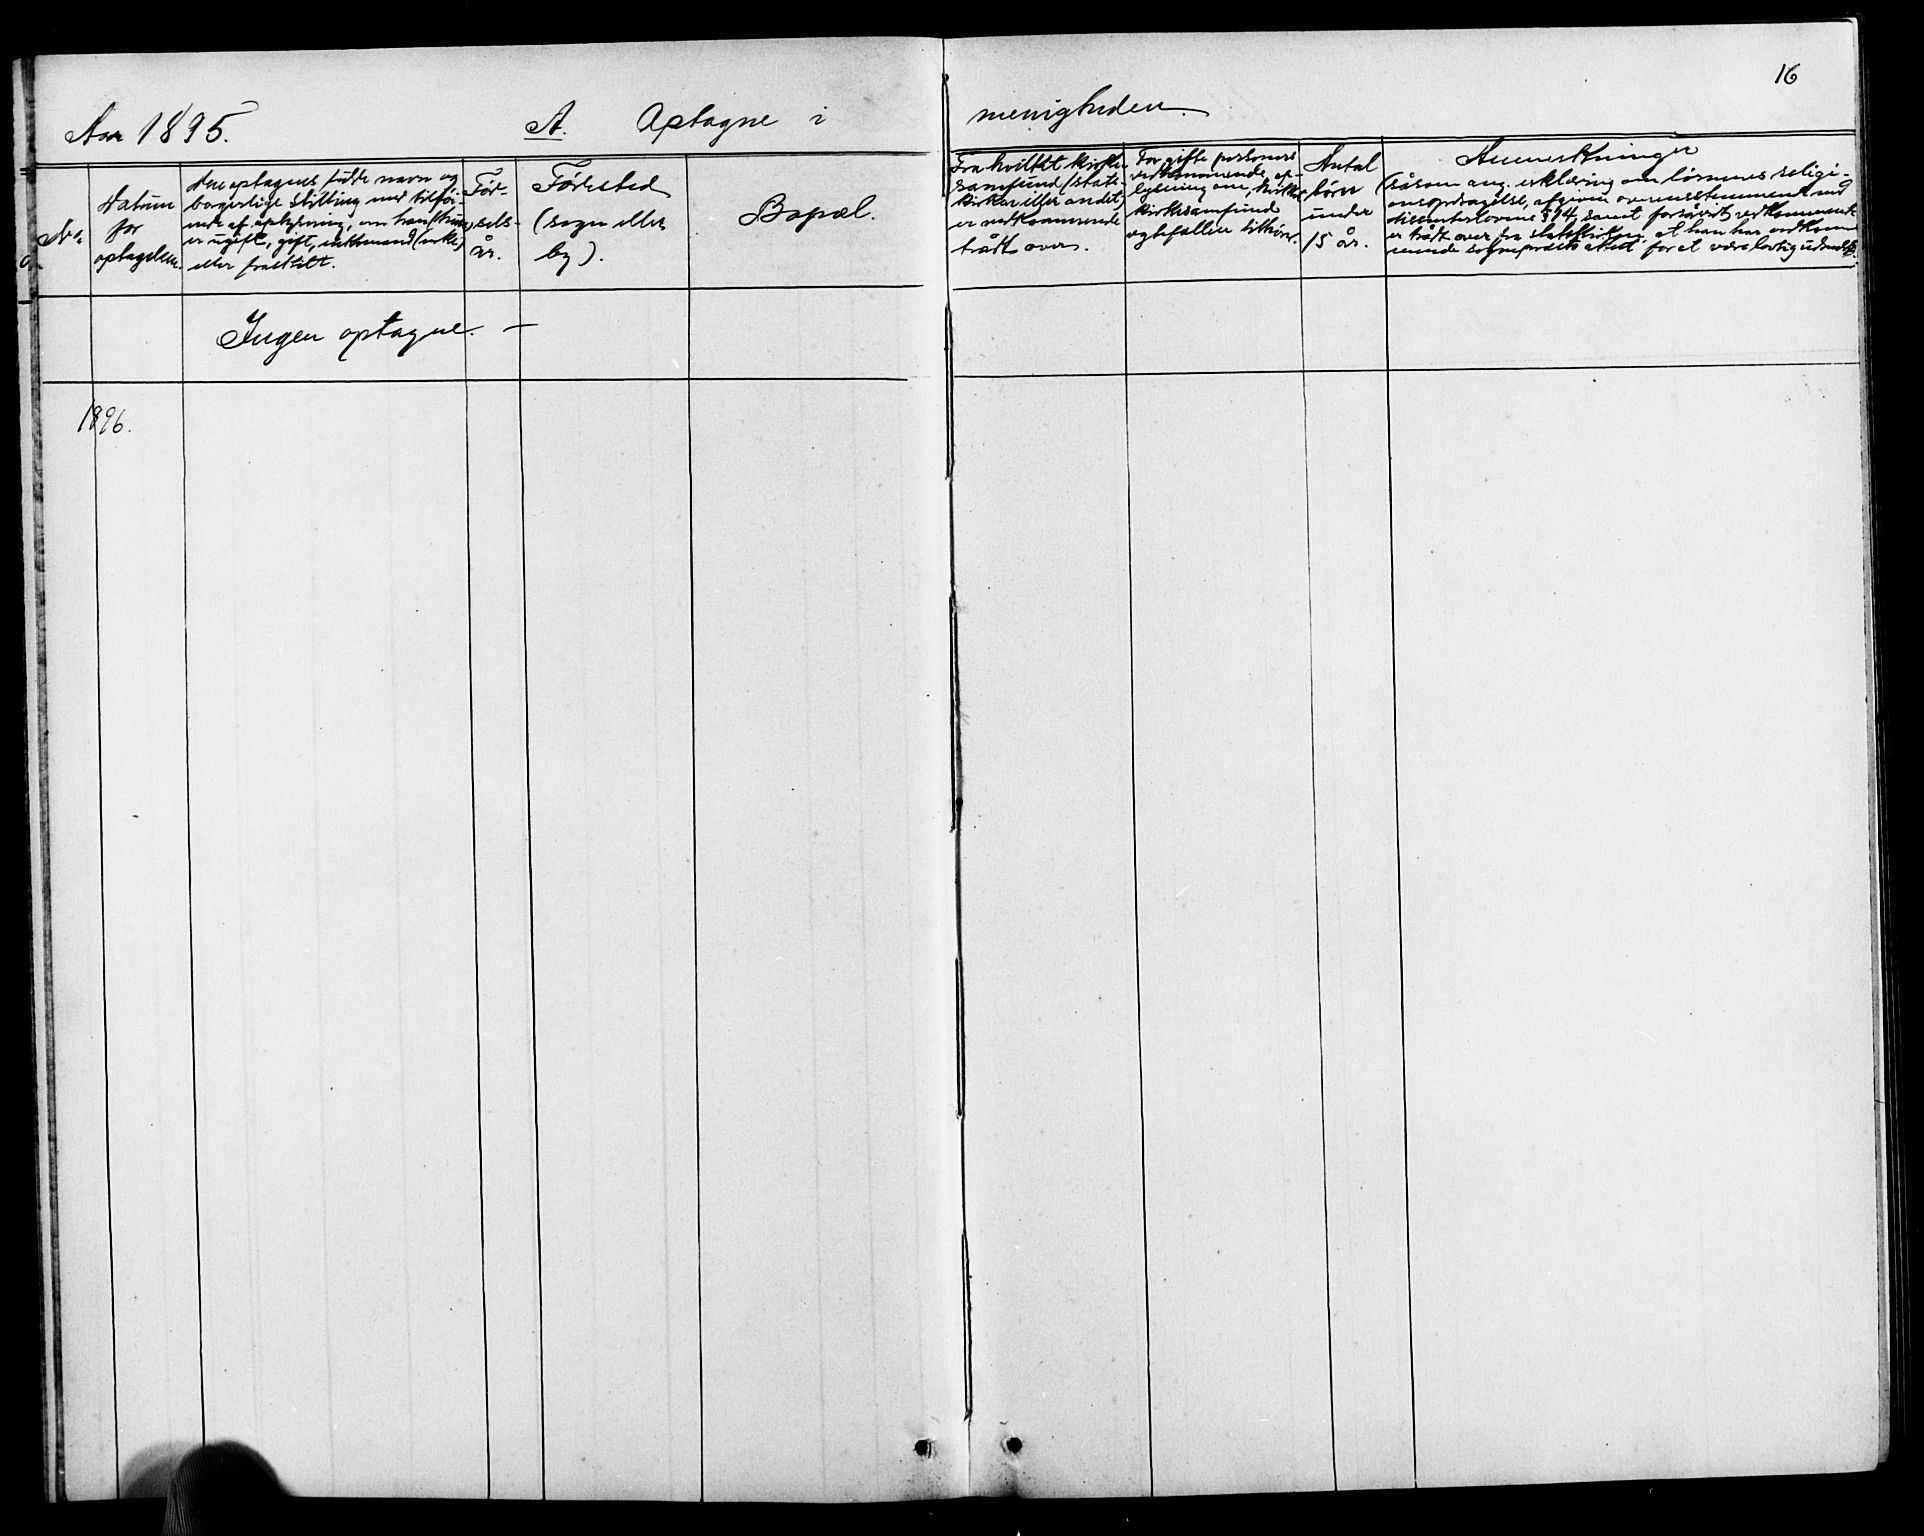 16
Aar 1895. A. Optagne i menigheden.
No.
Datum
for
optagelsen.
Den optagnes fulde navn og
borgerlige stilling med tilföi-
ende af oplysning, om han (hun)
er ugift, gift, enkemand (enke)
eller fraskilt.
Fød-
sels-
år.
Fødested
(sogn eller
by).
Bopæl.
Fra hvilket kirke-
samfund (stats-
kirken eller andet)
er vedkommende
trått over.
For gifte personers
vedkommende, op-
lysning om, hvilket
kirkesamfund
ægtefællen tilhörer.
Antal
börn
under
15 år.
Anmerkninger
(såsom ang. erklæring om börnenes religi-
onsopdragelse, afgiven overensstemmende med
dissenterlovens § 14, samt forsåvidt vedkommende
er trådt over fra statskirken, at han har vedkom-
mende sogneprests attest for at være lovlig udmeldt).
Ingen optagne. —
1896.